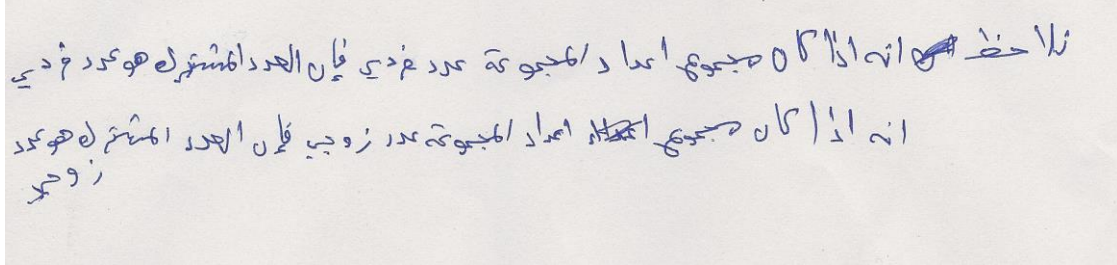 نلاحظ انه اذا كان مجموع اعداد المجموعة عدد فردي فإن العدد المشترك هو عدد فردي
انه اذا كان مجموع اعداد المجموعة عدد زوجي فإن العدد المشترك هو عدد
زوجي